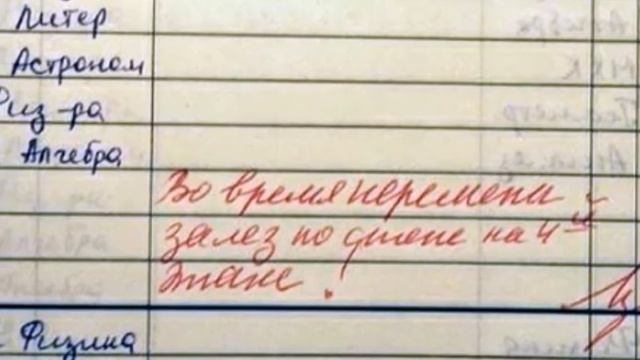 Литер
Астроном
Физ-ра
Алгебра
Во время перемены
залез по стене на 4ый
этаж!
Физика